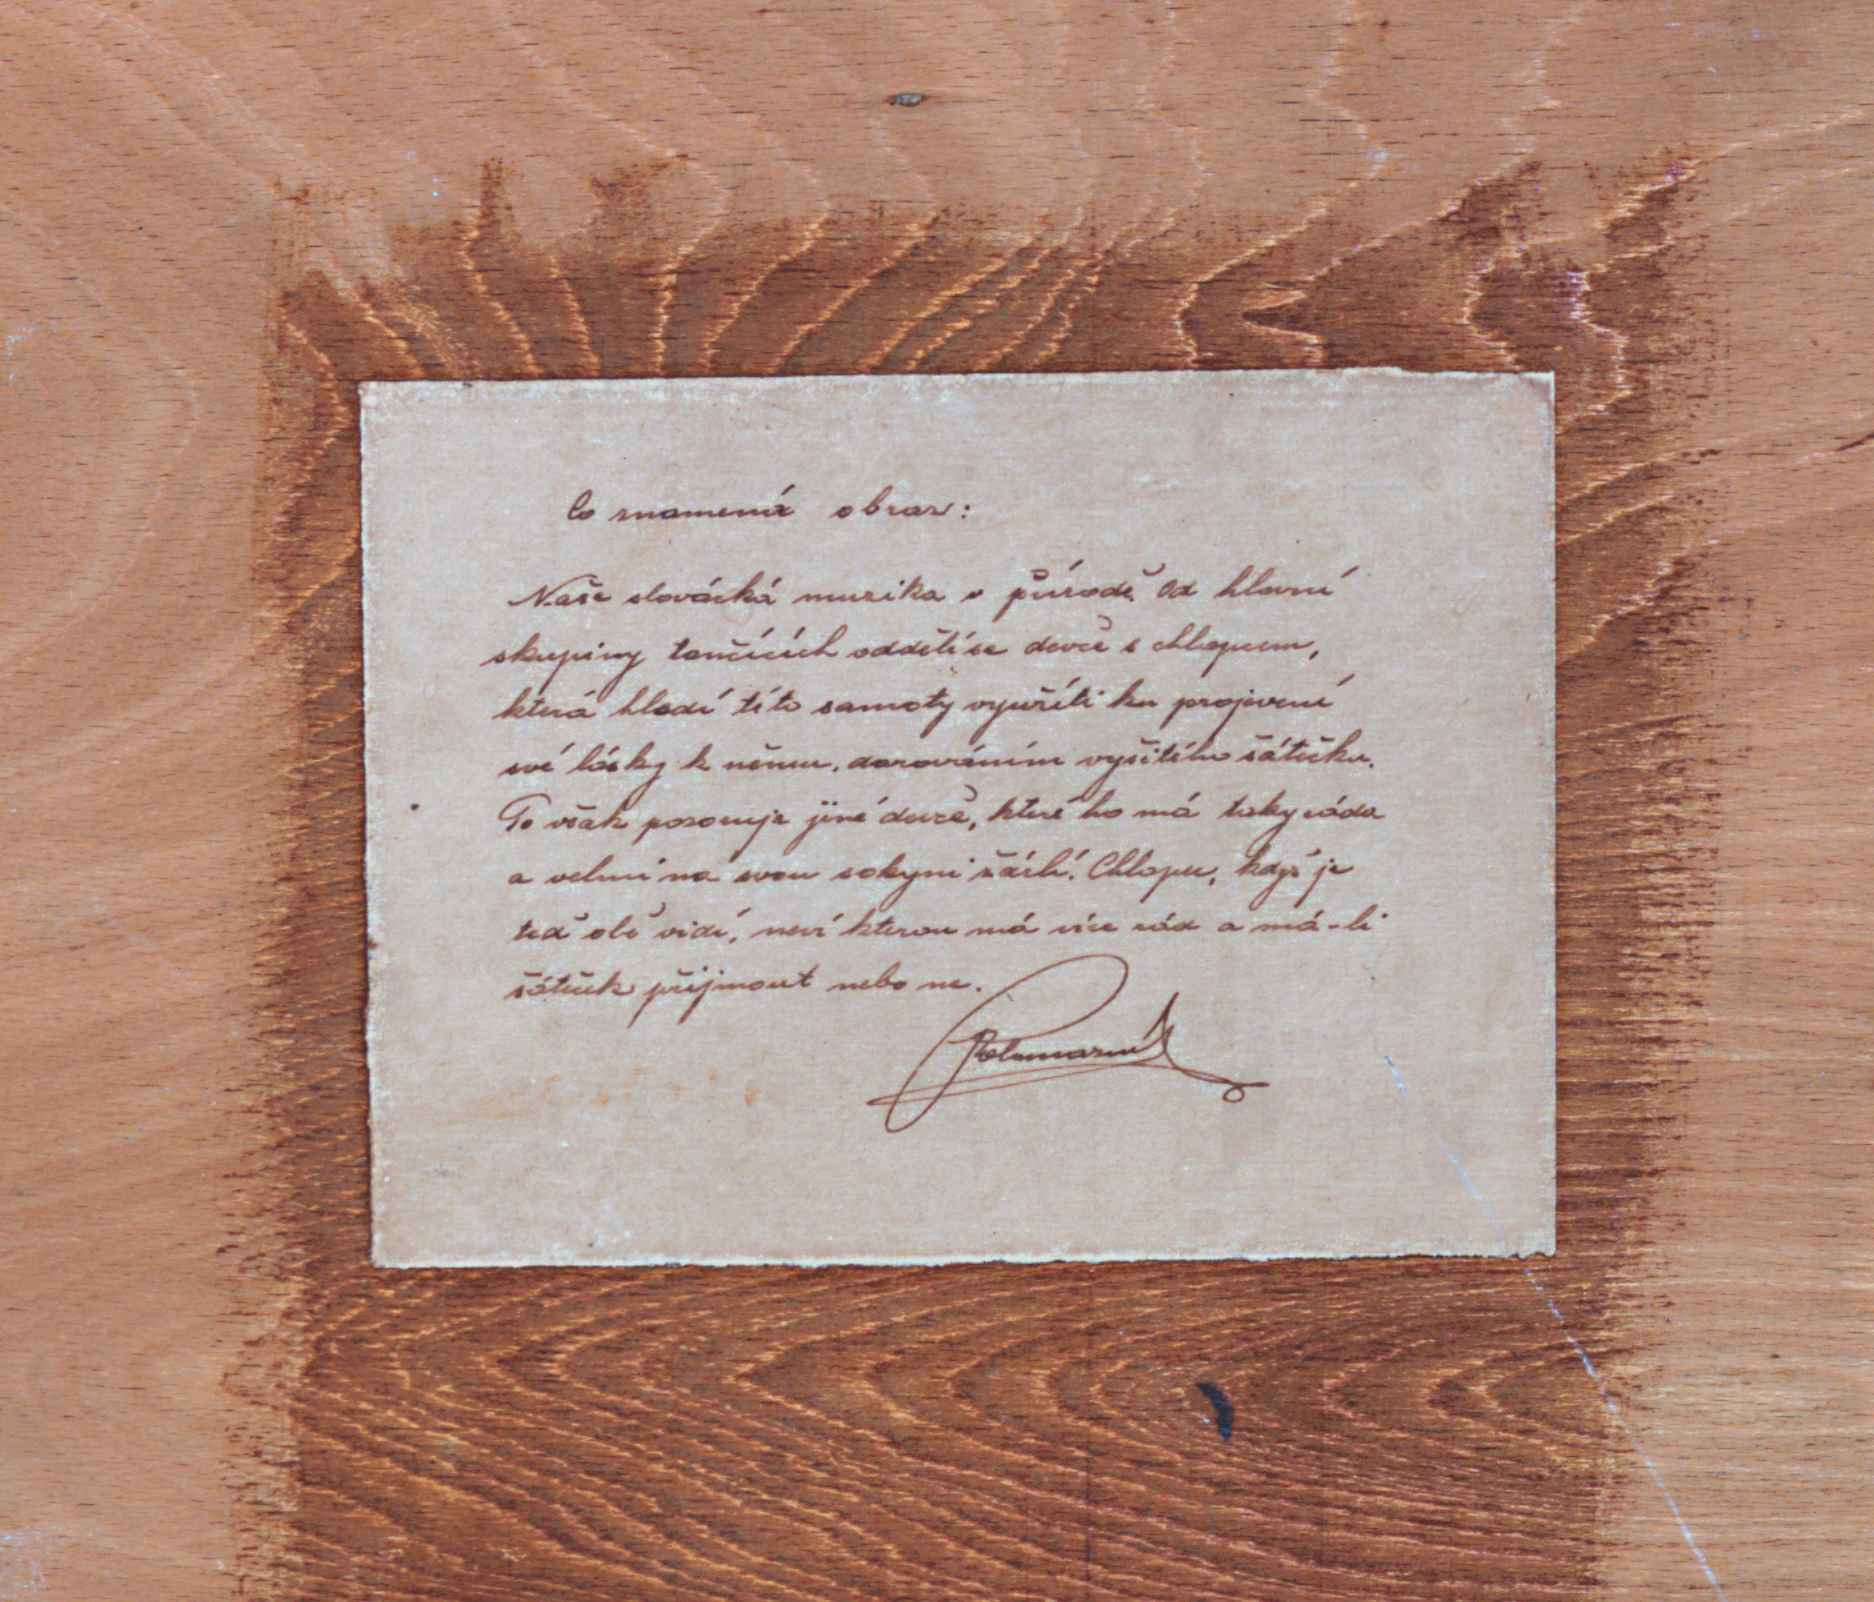 Co znamená obraz:
Naše slovácká muzika v přírodě. Od hlavní
skupiny tančících oddělí se děvče s chlapcem,
která hledí této samoty využíti ku projevení
své lásky k němu, darováním vyšitého šátečku.
To však pozoruje jiné děvče, které ho má taky ráda
a velmi na svou sokyni žárlí. Chlapec, když je
teď obě vidí, neví kterou má více rád a má-li
šáteček přijmout nebo ne.